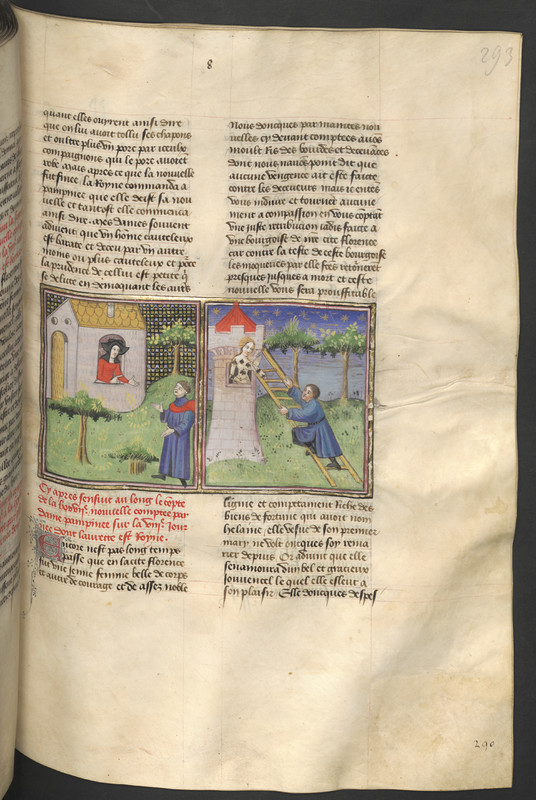 293
8
quant elles ouyrent ainsi dire
que on luy avoit tollu ses chapons
et oultre plus Un porc par
compaignons qui le porc avoient
robe mais apres ce que la nouvelle
fut finee la Royne commanda a
pampinee que elle deist sa nou
uelle et tantost elle commenca
ainsi dire mes dames souvent
advient que Un homme cauteleux
est barate et deceu par Un autre
moins ou plus cauteleux et pour ce
la prudence de cellui est petite qui
se delite en demoquant les aultres
Nous doncques par maintes nou
uelles cy devant comptees avons
moult ris des bourdes et decevances
dont nous point dit que
aucune vengence ait este faicte
contre les deceveurs mais ie entens
vous induire et tourner aucune
ment a compassion en vous comptant
Vne juste retribucion iadis faicte a
Vne bourgoise de nostre cite florence
car contre la teste de ceste bourgoise
les moqueries par elle faictes retournerent
presques jusques a mort et ceste
nouvelle vous sera prouffitable
Cy apres sensuit au long le compte
de la nouvelle comptee par
dame pampinee sur la Journee
dont laurecte est Royne
Encore nest pas long temps
passe que en la cite florence
fut Une jeune femme belle de corps
et autre de courage et de assez noble
lignie et comptamment riche des
biens de fortune qui avoit nom
helaine elle vesve de son premier
mary ne volt oncques soy rema
rier depuis Or advint que elle
senamoura dun bel et gracieux
jouvencel le quel elle esleut a
son plaisir Elle doncques
290